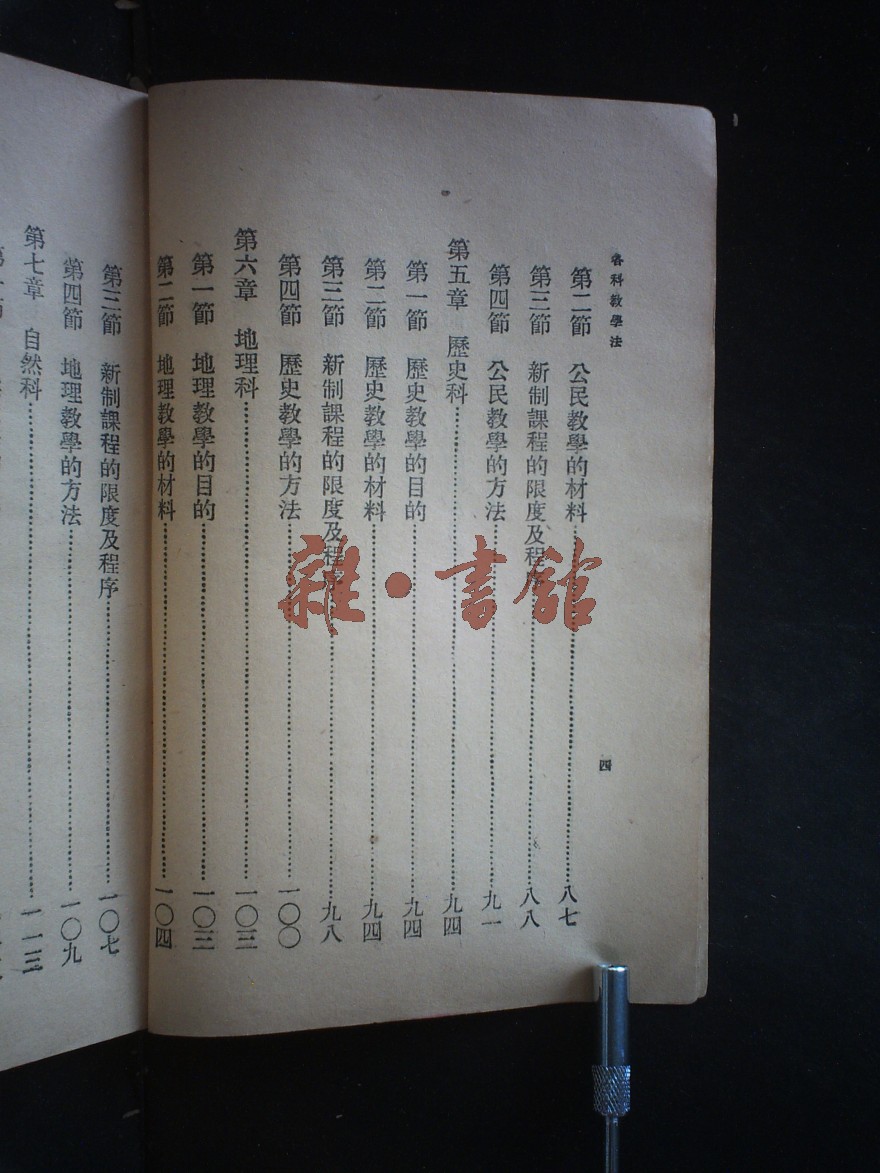 各科教學法
四
第二節 公民教學的材料……八七
第三節 新制課程的限度及程序……八八
第四節 公民教學的方法……九一
第五章 歷史科……九四
第一節 歷史教學的目的……九四
第二節 歷史教學的材料……九四
第三節 新制課程的限度及程序……九八
第四節 歷史教學的方法……一〇〇
第六章 地理科……一〇三
第一節 地理教學的目的……一〇三
第二節 地理教學的材料……一〇四
第三節 新制課程的限度及程序……一〇七
第四節 地理教學的方法……一〇九
第七章 自然科……一一三
雜·書館